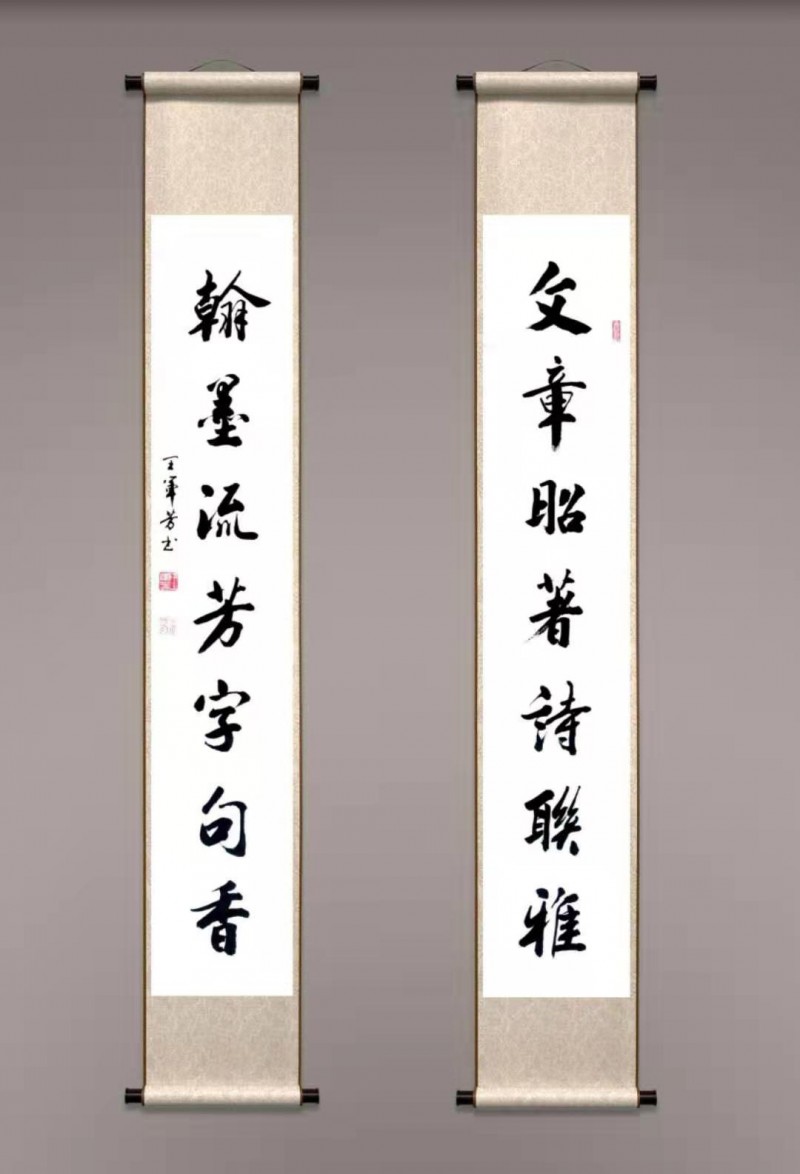 文章昭著詩聯雅
翰墨流芳字句香
王軍芳书